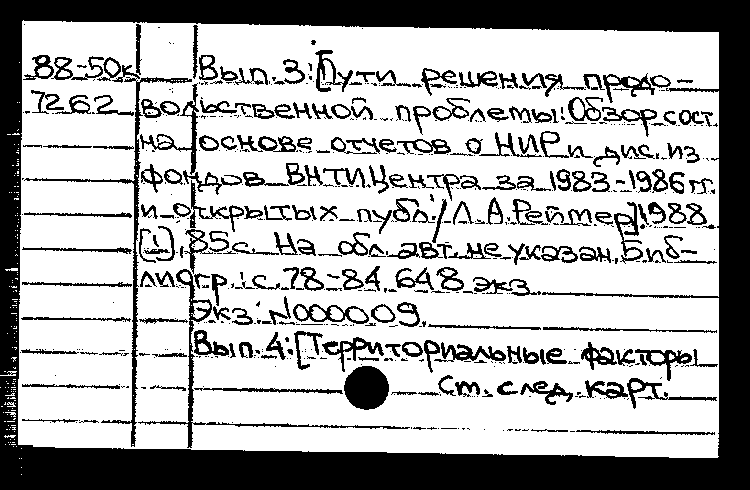 88-50к Вып. 3: [Пути решения продо-
7262 вольственной проблемы: Обзор сост.
на основе отчетов о НИР и дис. из
фондов ВНТИЦентра за 1983-1986 гг.
и открытых публ. / Л. А. Рейтер]. 1988.
[1], 85 с. На обл. авт. не указан. Биб-
лиогр.: с. 78-84. 648 экз.
Экз. N000009.
Вып. 4: [Территориальные факторы
См. след. карт.